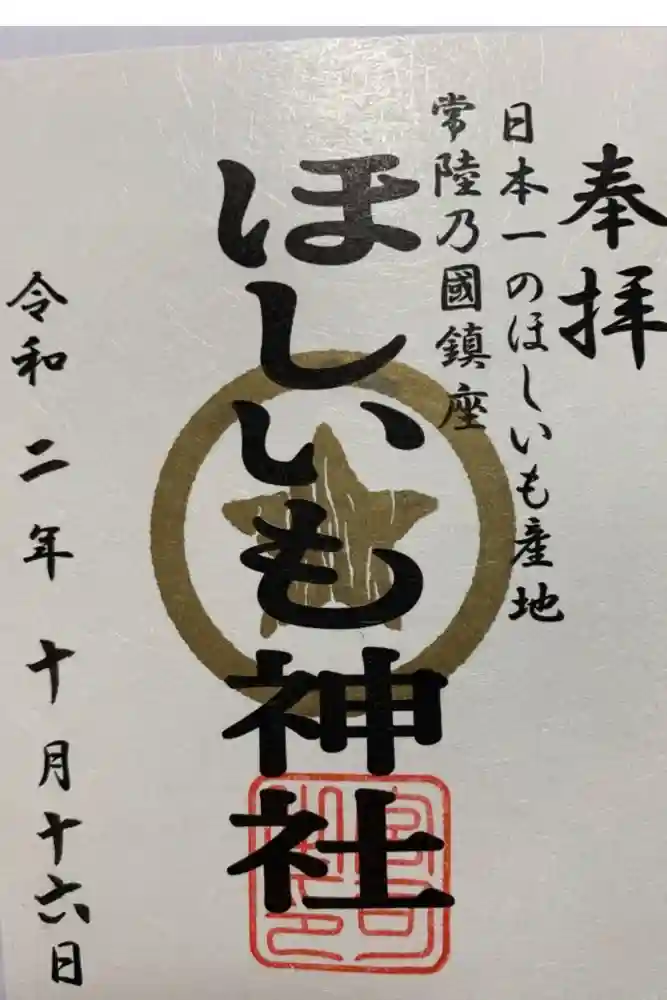 奉拝
日本一のほしいも産地
常陸乃國鎮座
ほしいも神社
令和二年十月十六日